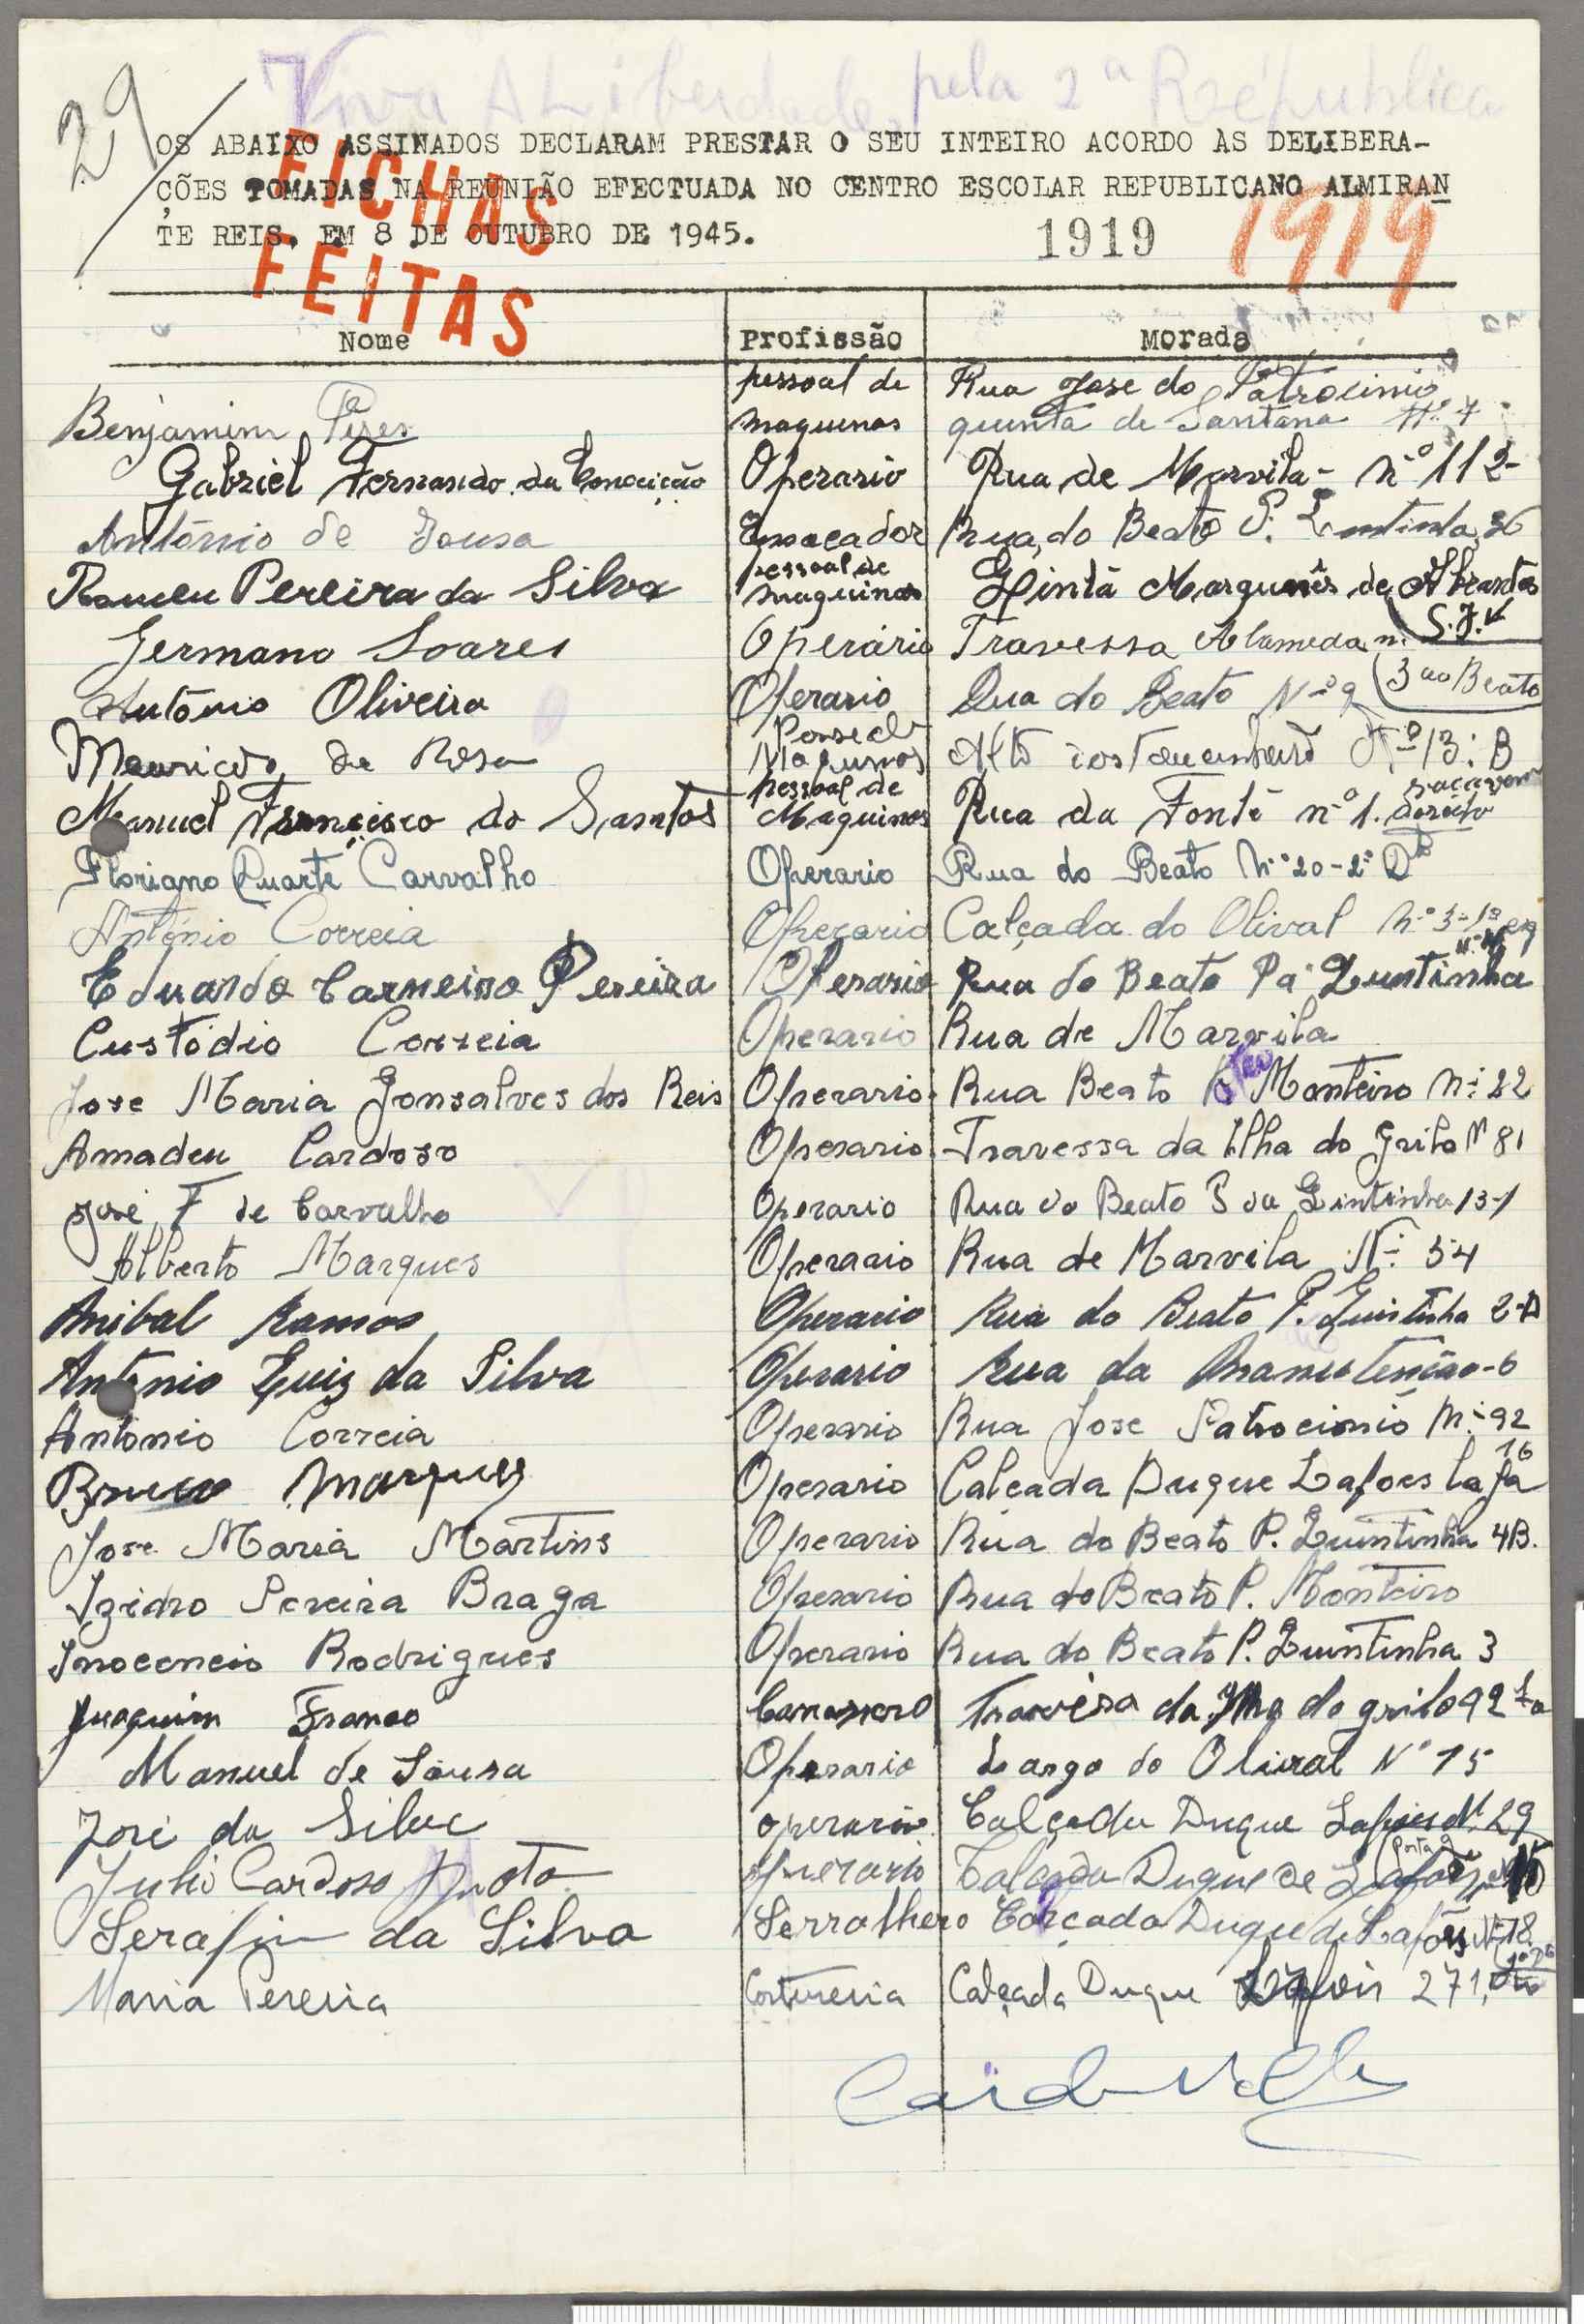 Viva A Liberdade, pela 2ª República
29
OS ABAIXO ASSINADOS DECLARAM PRESTAR O SEU INTEIRO ACORDO ÀS DELIBERA-
ÇÕES TOMADAS NA REUNIÃO EFECTUADA NO CENTRO ESCOLAR REPUBLICANO ALMIRAN
TE REIS, EM 8 DE OUTUBRO DE 1945.
1919 1919
FICHAS
FEITAS
Nome Profissão Morada
Benjamim Peres pessoal de maquenas Rua Jose do Patrocinio quinta de Santana Nº 7
Gabriel Fernando da Conceição Operario Rua de Marvila - nº 112-
António de Sousa Ensacador Rua do Beato P. 36
Romeu Pereira da Silva pessoal de maquinas de Abrantes
Germano Soares Operário Travessa Alameda n. S.J.
António Oliveira Operario Rua do Beato Nº 9 3 ao Beato
Mauricio da Rosa Alto dos Nº 13: B
Manuel Francisco do Santos pessoal de Maquinas Rua da Fonte nº 1. direito sacavem
Floriano Duarte Carvalho Operario Rua do Beato Nº 20-2º Dto
António Correia Operario Calçada do Olival Nº 3-1º esq
Eduardo Carneiro Pereira Operario Rua do Beato Pa Quintinha
Custódio Correia Operario Rua de Marvila
Jose Maria Gonsalves dos Reis Operario Rua Beato Monteiro Nº 22
Amadeu Cardoso Operario Travessa da Ilha do Grilo N 81
José F de Carvalho Operario Rua do Beato P da Qintinha 13-1
Alberto Marques Operario Rua de Marvila Nº 54
Anibal Ramos Operario Rua do Beato P. Quintinha 2-D
António Luiz da Silva Operario Rua da Manutenção-6
Antonio Correia Operario Rua Jose Patrocionio Nº 92
Marques Operario Calcada Duque Lafoes 16
Jose Maria Martins Operario Rua do Beato P. Quintinha 4B.
Izidro Pereira Braga Operario Rua do Beato P. Monteiro
Inocencio Rodrigues Operario Rua do Beato P. Quintinha 3
Juaquim Franco Travesa da Ilha do grilo 92
Manuel de Sousa Operario Largo do Olival Nº 15
José da Silva operario Calçada Duque Lafoes Nº 29
Julio Cardoso Mota operario Calçada Duque de Lafões Porta
Serafim da Silva Serralhero Calçada Duque de Lafões Nº 18
Maria Pereira Costureira Calçada Duque Lafões 271,